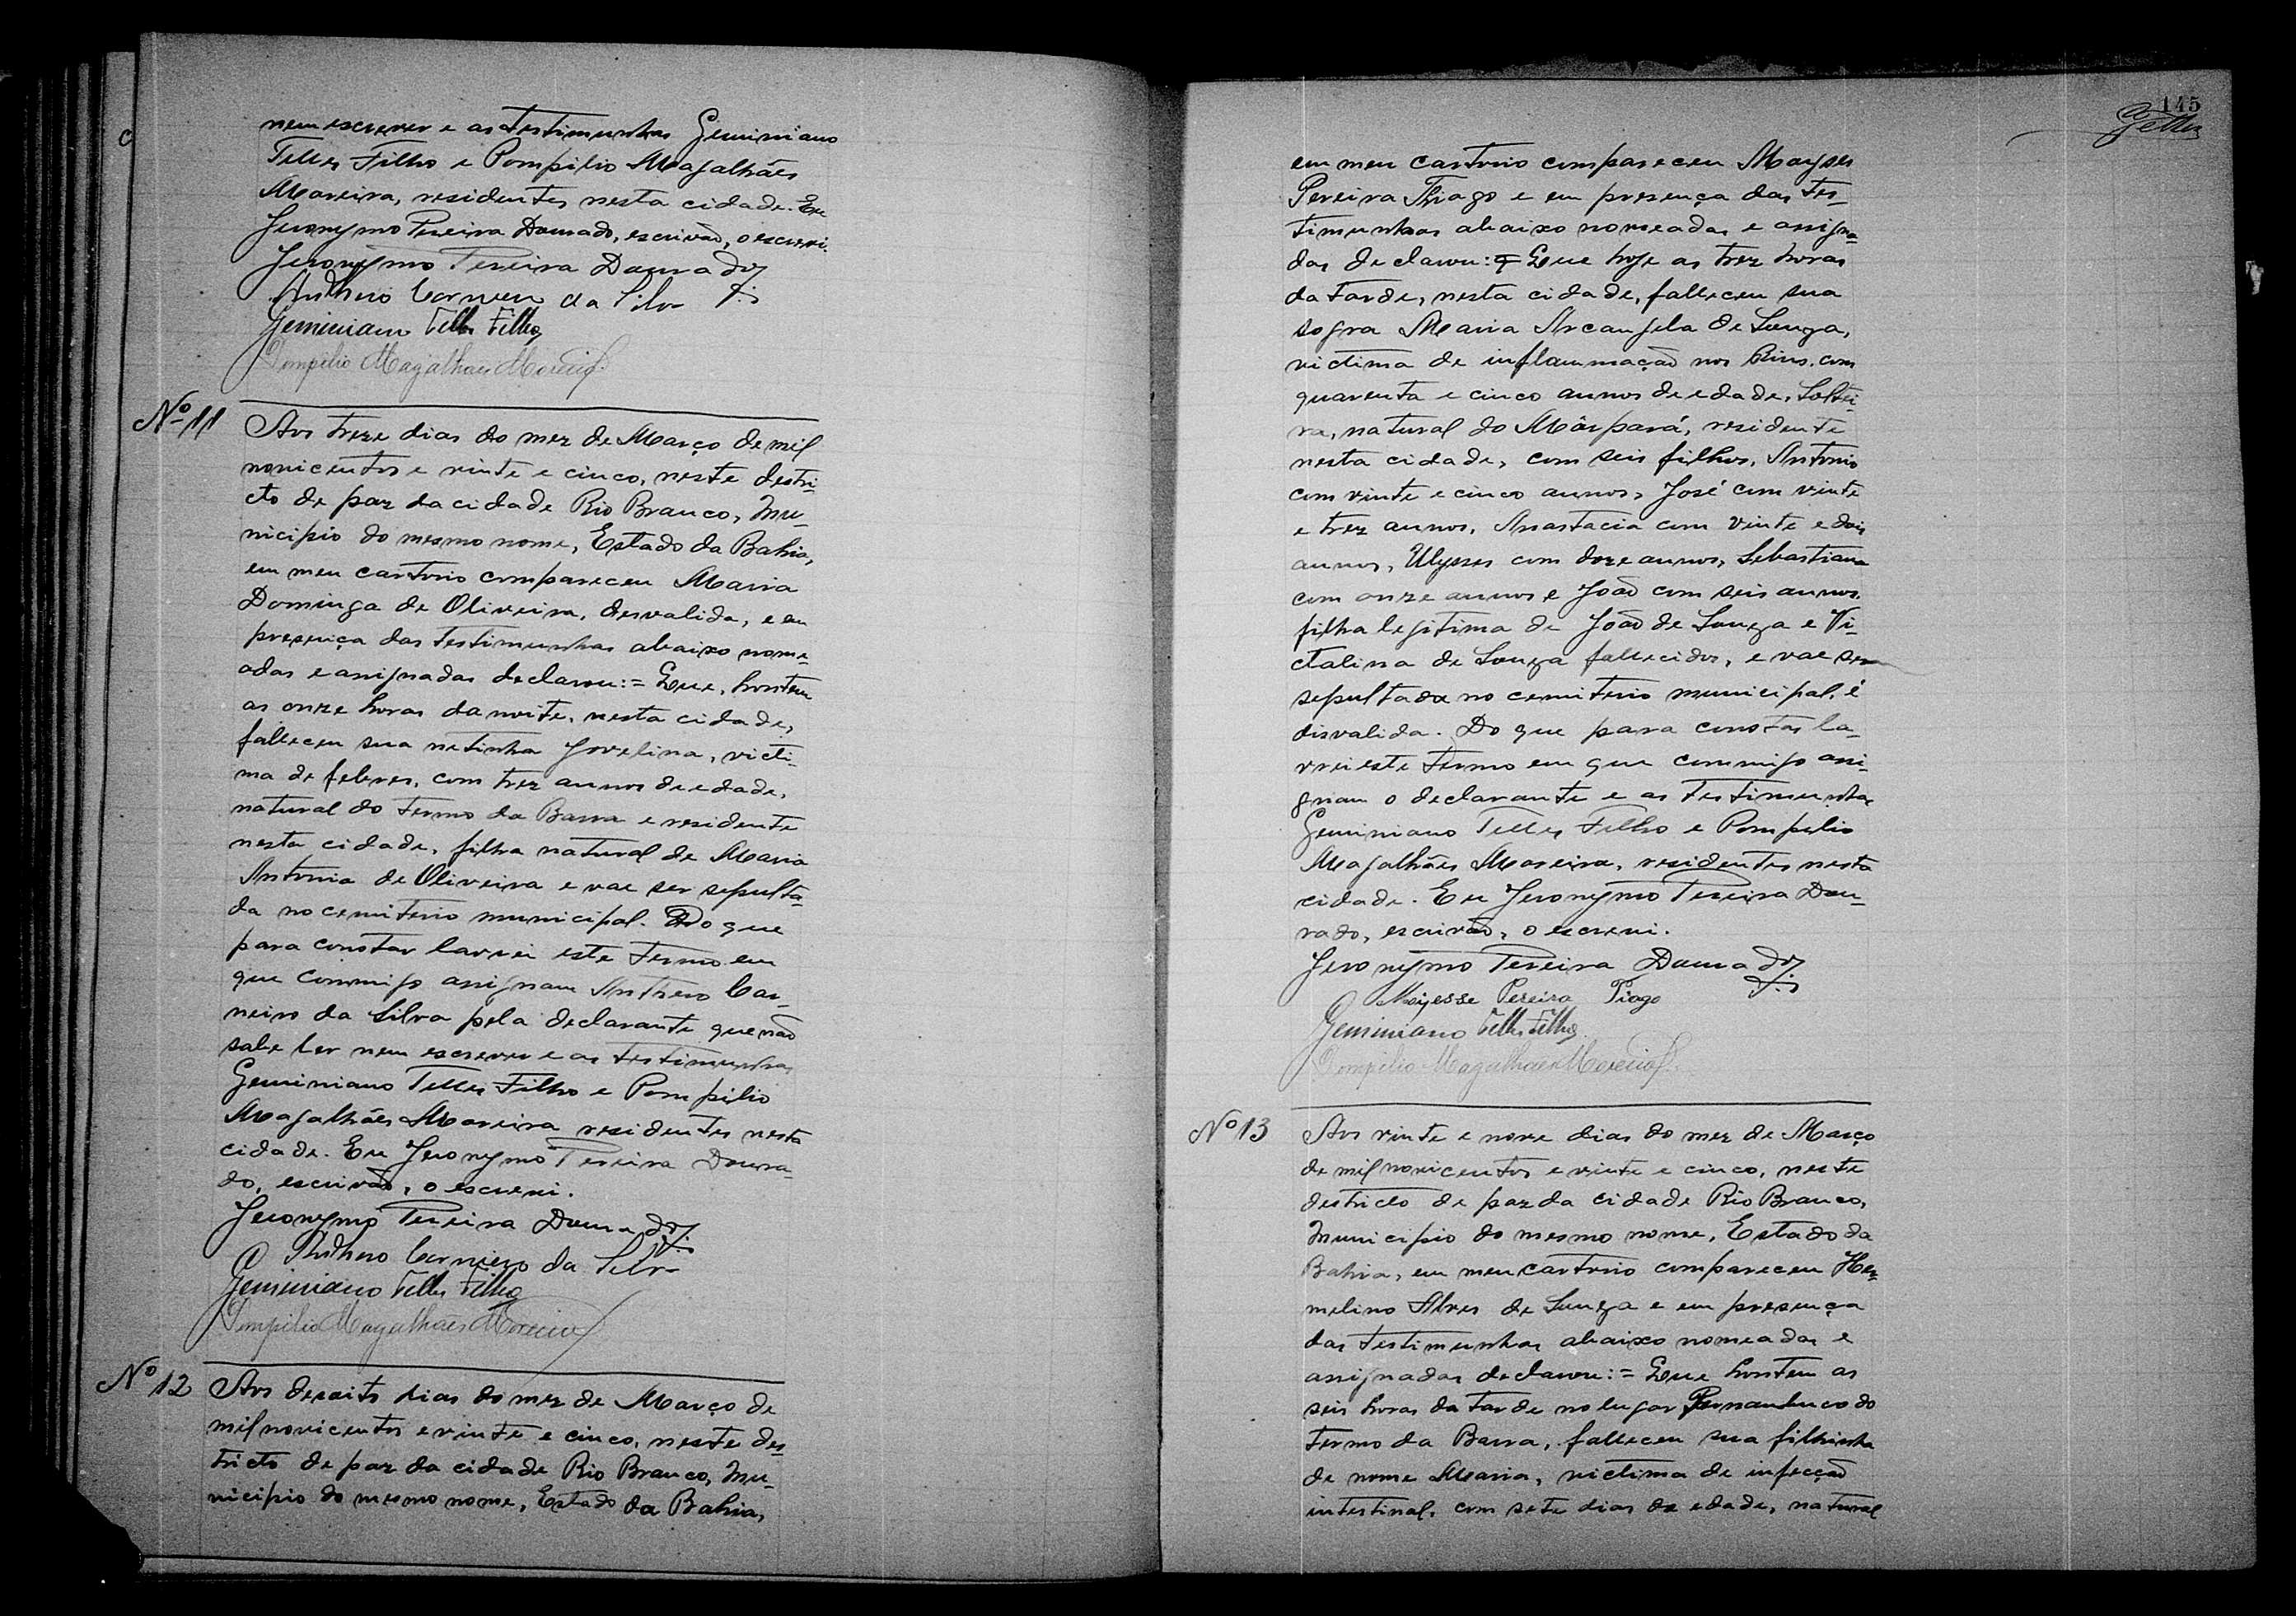 nem escrever e as testimunhas Geminiano
Telles Filho e Pompilio Magalhães
Moreira, residentes nesta cidade. Eu
Jeronymo Pereira Dourado, escrivão, o escrevi.
Jeronymo Pereira Dourado
Anthero Carneiro da Silva
Geminiano Telles Filho
Pompilio Magalhães Moreira
Nº 11
Aos treze dias do mez de Março de mil
novicentos e vinte e cinco, neste destri-
cto de paz da cidade Rio Branco, Mu-
nicipio do mesmo nome, Estado da Bahia,
em meu cartorio compareceu Maria
Dominga de Oliveira, desvalida, e em
presença das testimunhas abaixo nome-
adas e assignadas declarou:= Que, hontem
as onze horas da noite, nesta cidade,
falleceu sua netinha Jovelina, victi-
ma de febres, com trez annos de edade,
natural do termo da Barra e residente
nesta cidade, filha natural de Maria
Antonia de Oliveira e vae ser sepulta-
da no cemiterio municipal. Do que
para constar lavrei este termo em
que commigo assignam Anthero Car-
neiro da Silva pela declarante que não
sabe ler nem escrever e as testimunhas
Geminiano Telles Filho e Pompilio
Magalhães Moreira residentes nesta
cidade. Eu Jeronymo Pereira Doura-
do, escrivão, o escrevi.
Jeronymo Pereira Dourado
Anthero Carneiro da Silva
Geminiano Telles Filho
Pompilio Magalhães Moreira
Nº 12
Aos dezoito dias do mez de Março de
mil novicentos e vinte e cinco, neste des-
tricto de paz da cidade Rio Branco, Mu-
nicipio do mesmo nome, Estado da Bahia,
145
Telles
em meu cartorio compareceu Moyses
Pereira Thiago e em presença das tes-
timunhas abaixo nomeadas e assigna-
das declarou:= Que hoje as trez horas
da tarde, nesta cidade, falleceu sua
sogra Maria Arcangela de Souza,
victima de inflammação nos Rins, com
quarenta e cinco annos de edade, Soltei-
ra, natural do Mórpará, residente
nesta cidade, com seis filhos, Antonio
com vinte e cinco annos, José com vinte
e trez annos, Anastacia com vinte e dois
annos, Ulysses com doze annos, Sebastiana
com onze annos e João com seis annos.
filha legitima de João de Souza e Vi-
ctalina de Souza fallecidos, e vae ser
sepultada no cemiterio municipal. é
disvalida. Do que para constar la-
vrei este termo em que commigo assi-
gnam o declarante e as testimunhas
Geminiano Telles Filho e Pompilio
Magalhães Moreira, residentes nesta
cidade. Eu Jeronymo Pereira Dou-
rado, escrivão, o escrevi.
Jeronymo Pereira Dourado
Moyesse Pereira Tiago
Geminiano Telles Filho
Pompilio Magalhães Moreira
Nº 13
Aos vinte e nove dias do mez de Março
de mil novicentos e vinte e cinco, neste
destricto de paz da cidade Rio Branco,
Municipio do mesmo nome, Estado da
Bahia, em meu cartorio compareceu Her-
melino Alves de Souza e em presença
das testimunhas abaixo nomeadas e
assignadas declarou:= Que hontem as
seis horas da tarde no lugar Pernambuco do
termo da Barra, falleceu sua filhinha
de nome Maria, victima de infecção
intestinal, com sete dias de edade, natural